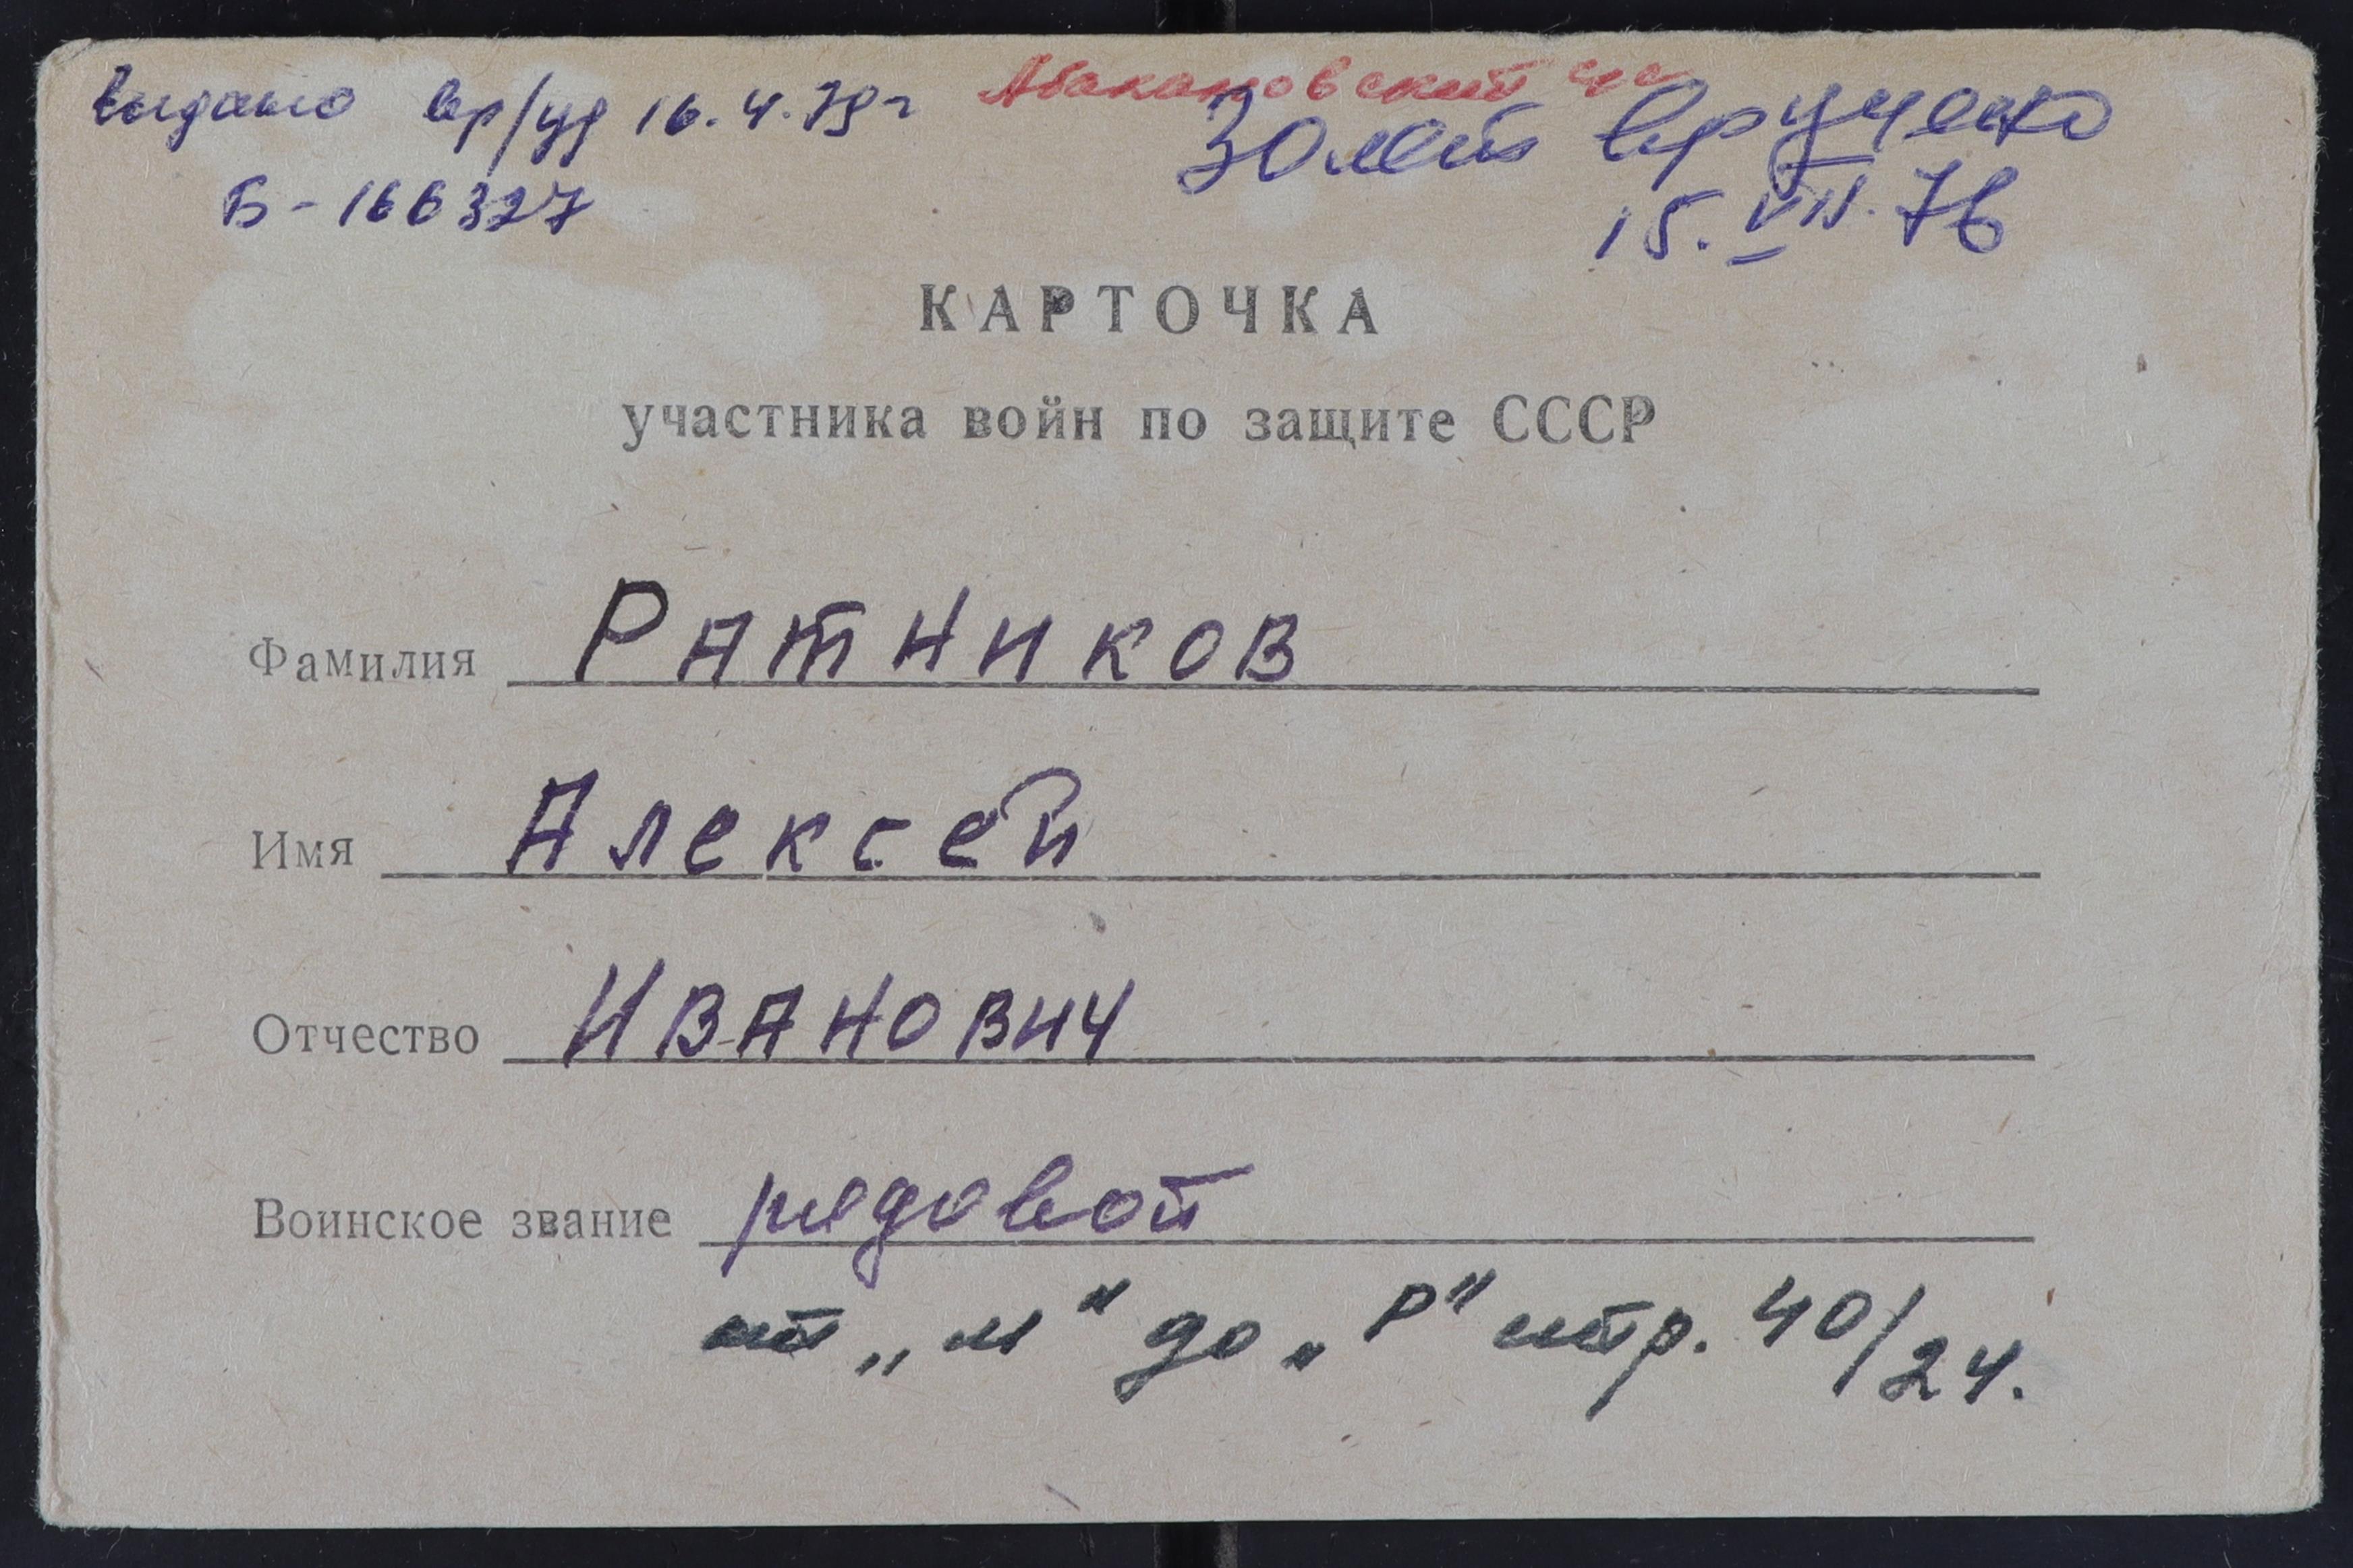 Абакановский с/с
выдано вр/уд 16.4.79г
Б-166327
30 лет вручено
15.VII.76
КАРТОЧКА
участника войн по защите СССР
Фамилия Ратников
Имя Алексей
Отчество Иванович
Воинское звание рядовой
от „м" до „Р" стр. 40/24.